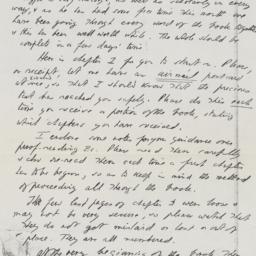 as he has some
have been going through every word of the book together
this has been well worth while. The whole should be
complete in a few days' time.
Here is chapter I for you to start on. Please,
on receipt, let me have an air mail postcard
at once, so that I should know that the precious
has reached you safely. Please do this each
time you receive a portion of the book, stating
which chapters you have received.
I enclose some notes for your guidance on
proof-reading etc. Please read them carefully
re-read them each time a fresh chapter
has to be begun, so as to keep in mind the method
of proceeding all through the book.
The few last pages of chapter I were loose
may not be very secure, so please watch that
they do not get mislaid or lost or out of
place. They are all numbered.
At the very beginning of the book